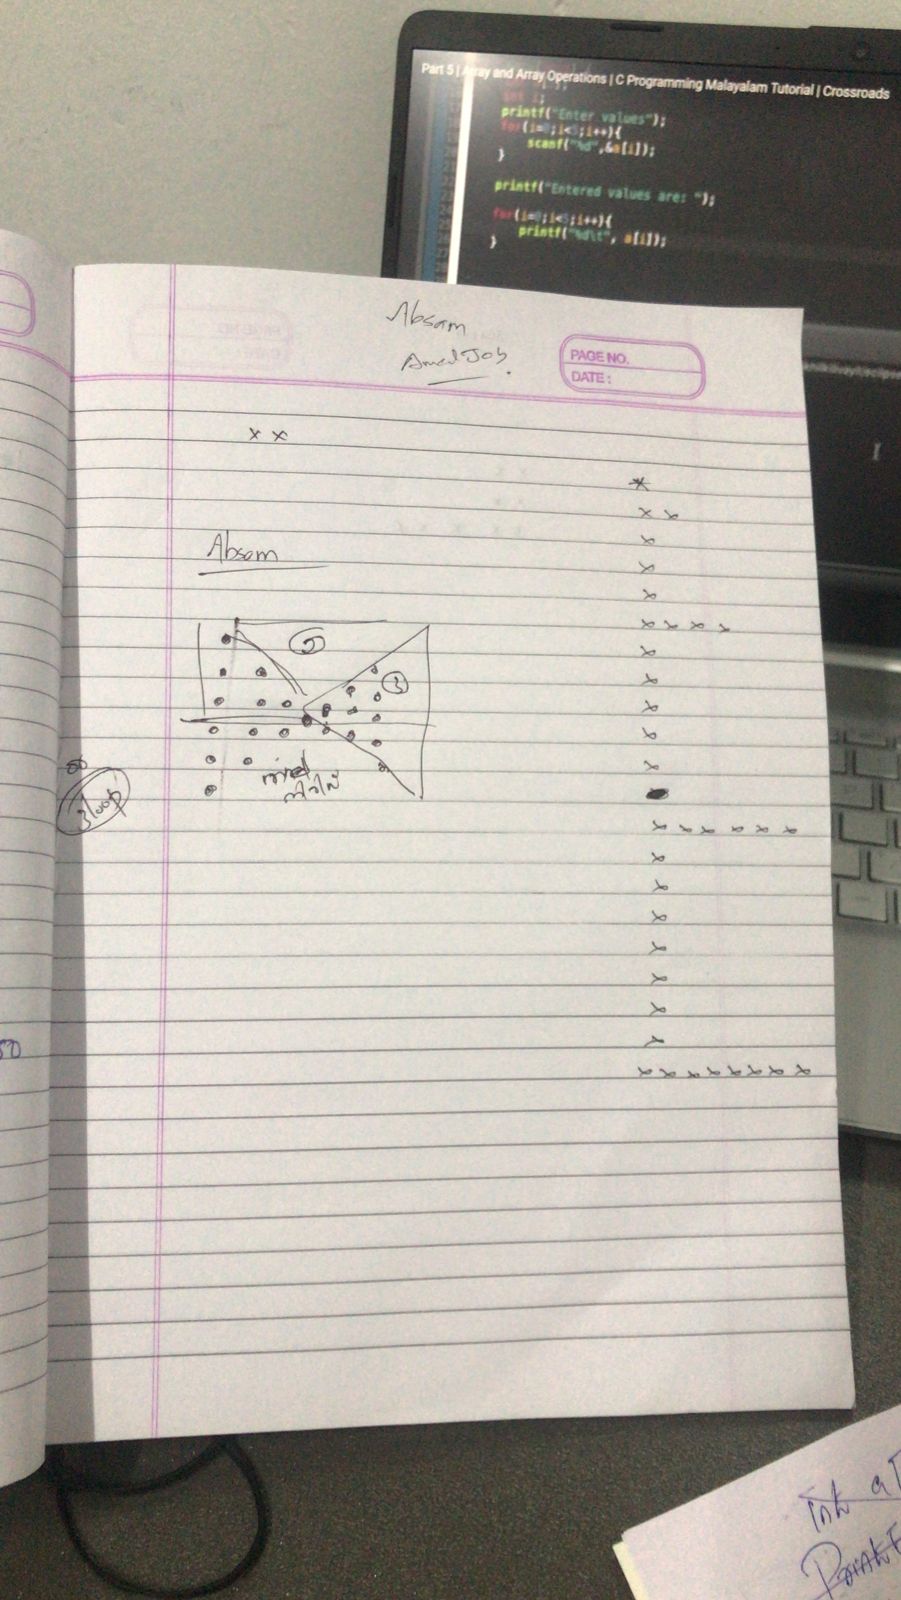 Part 5 | Array and Array Operations | C Programming Malayalam Tutorial | Crossroads
int i;
printf("Enter values");
for(i=0;i<5;i++){
scanf("%d",&a[i]);
}
printf("Entered values are: ");
for(i=0;i<5;i++){
printf("%d\t", a[i]);
}
Absam
Amal Job
PAGE NO.
DATE :
x x
*
x x
x
x
x
x x x x
x
x
x
x
x
x x x x x x
x
x
x
x
x
x
x
x x x x x x x x
Absam
2
3
3 loop